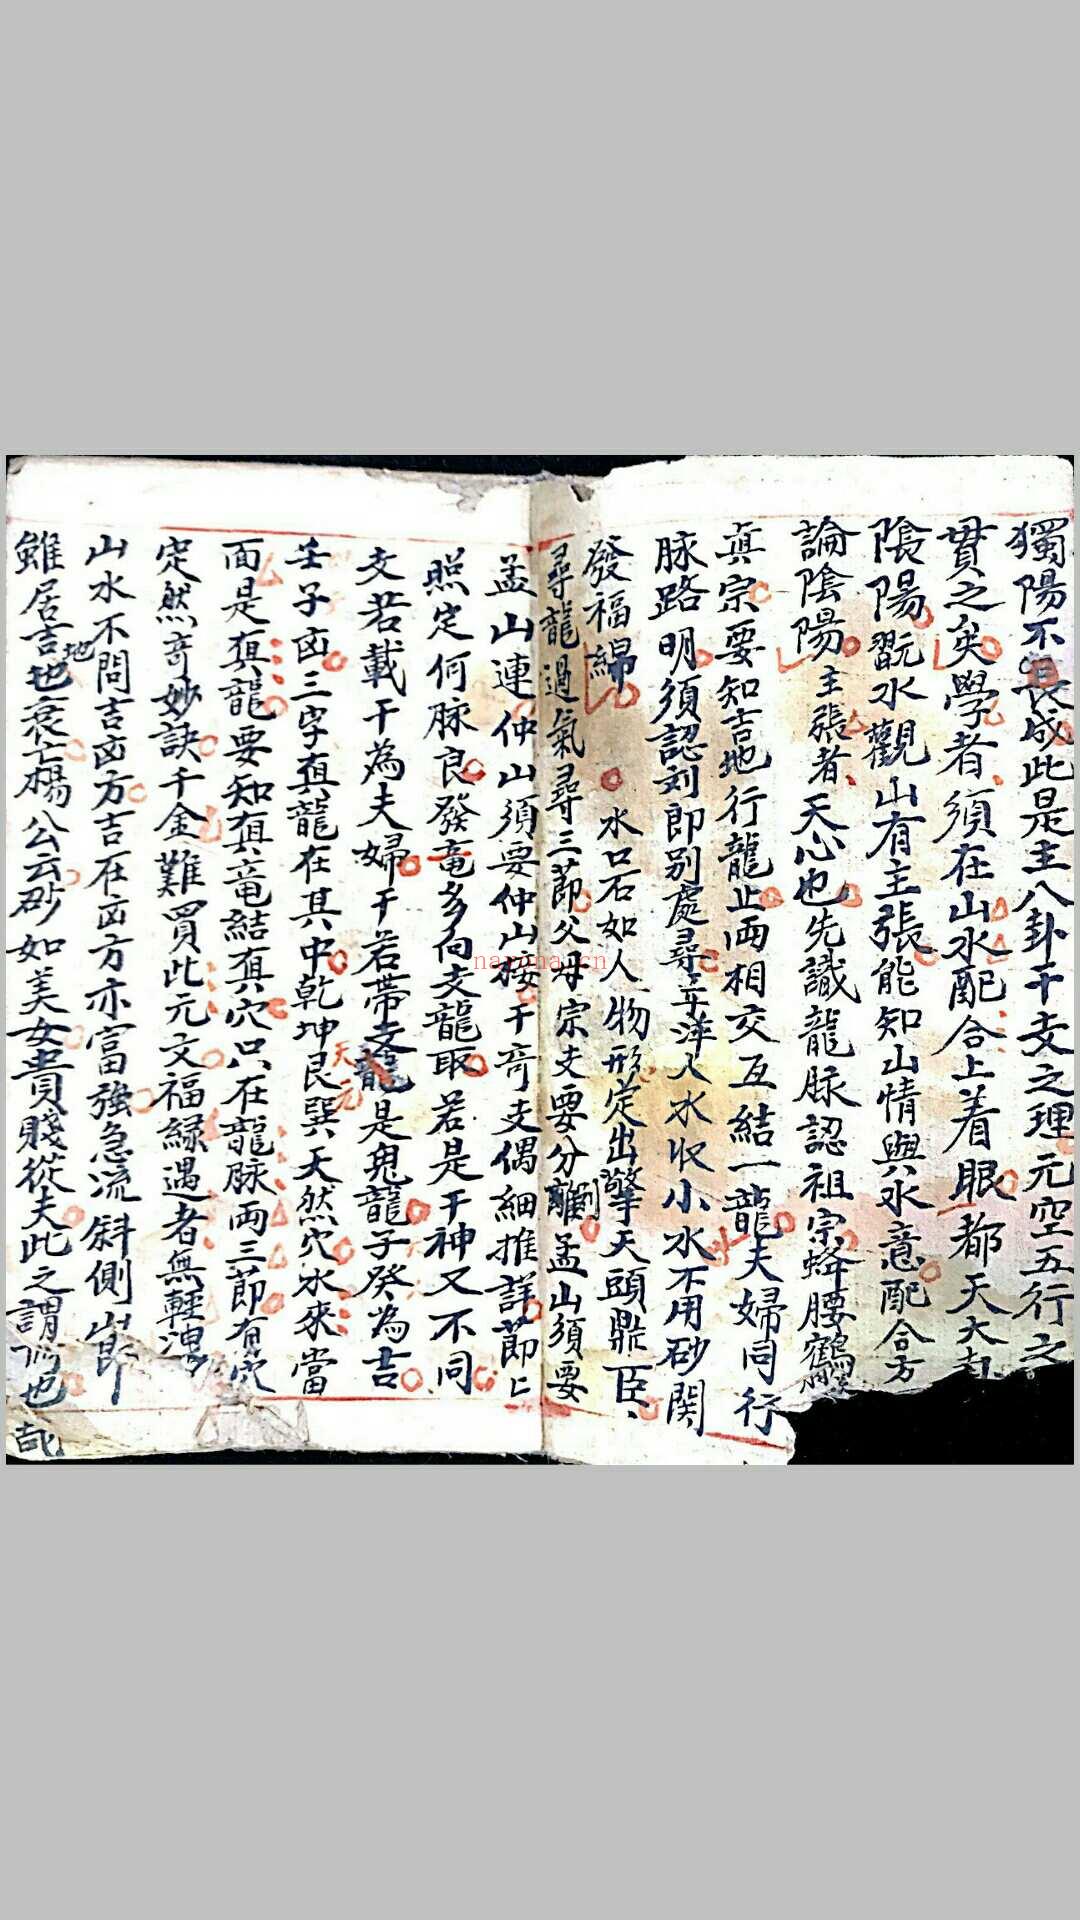 獨陽不長成此是主八卦干支之理元空五行之
貫之矣學者須在山水配合上着眼都天大
陰陽翫水觀山有主張能知山情與水意配合方
論陰陽主張者天心也先識龍脉認祖宗蜂腰鶴
眞宗要知吉地行龍止両相交互結一龍夫婦同行
脉路明須認刘郎别處尋平洋入水收小水不用砂関
發福綿水口石如人物形定出擎天頭鼎臣
尋龍過氣尋三莭父母宗支要分離劃孟山須要
孟山連仲山須要仲山接干竒支偶細推詳莭上
照定何脉良發竜多向支龍取若是干神又不同
支若載干為夫婦干若帶支龍是鬼龍子癸為吉
壬子凶三字真龍在其中乾坤艮巽天然穴水來當
天元
面是真龍要知真竜結真穴只在龍脉両三莭
定然竒妙訣千金難買此元文福緑遇者無輕洩
山水不問吉凶方吉在凶方亦富強急流斜側
雖居吉地衰亡楊公云砂如美女貴賤從夫此之謂也
地
哉
narena.cn